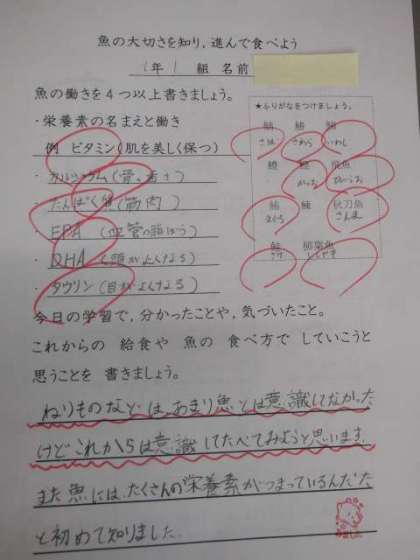 魚の大切さを知り，進んで食べよう
1年 1 組 名前
魚の働きを４つ以上書きましょう。
・栄養素の名まえと働き
例 ビタミン（肌を美しく保つ）
・カルシウム（骨、歯）
・たんぱく質（筋肉）
・EPA（血管の
・DHA（頭がよくなる）
・タウリン（目がよくなる）
★ふりがなをつけましょう。
鯖 鰆 鰯
さば さわら いわし
鰹 飛魚
かつお
鮪 秋刀魚
まぐろ さんま
鮭 柳葉魚
さけ ししゃも
今日の学習で，分かったことや，気づいたこと。
これからの 給食や 魚の 食べ方で していこうと
思うことを 書きましょう。
ねりものなどは、あまり魚とは意識してなかった
けどこれからは意識してたべてみようと思います。
また魚には、たくさんの栄養素がつまっているんだな
と初めて知りました。